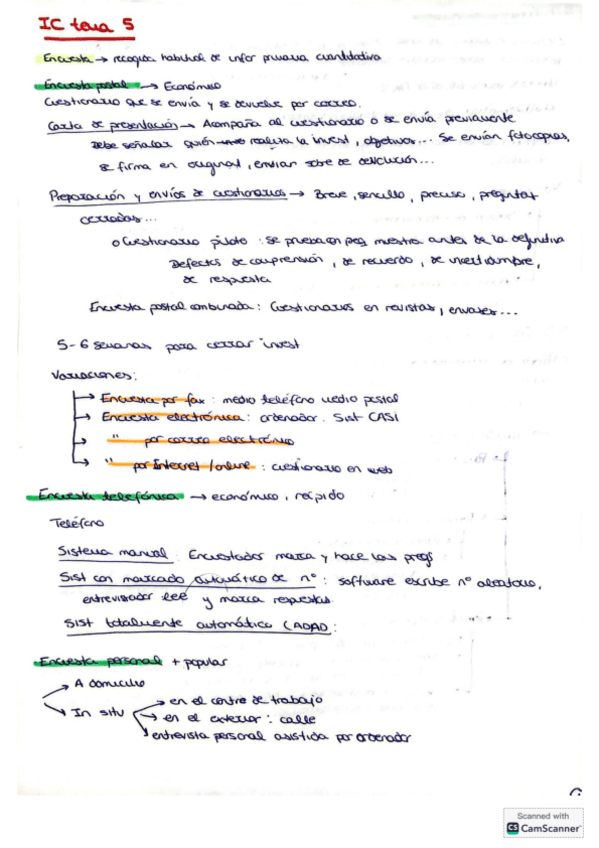 IC tema 5
Encuesta → recogida habitual de infor primaria cuantitativa
Encuesta postal → Económico
Cuestionario que se envía y se devuelve por correo.
Carta de presentación → Acompaña al cuestionario o se envía previamente
Debe señalar quién realiza la invest, objetivos... Se envían fotocopias,
se firma en original, enviar sobre de devolución...
Preparación y envíos de cuestionarios → Breve, sencillo, preciso, preguntas
cerradas...
o Cuestionario piloto : se prueba en peq muestra antes de la definitiva
Defectos de comprensión, de recuerdo, de incertidumbre,
de respuesta
Encuesta postal combinada : Cuestionarios en revistas, envases...
5-6 semanas para cerrar invest
Variaciones:
→ Encuesta por fax : medio teléfono medio postal
→ Encuesta electrónica : ordenador. Sist CASI
→ " por correo electrónico
→ " por Internet / online : cuestionario en web
Encuesta telefónica → económico, rápido
Teléfono
Sistema manual : Encuestador marca y hace las pregs
Sist con marcado automático de nº : software escribe nº aleatorio,
entrevistador lee y marca respuestas.
Sist totalmente automático CADAD:
Encuesta personal + popular
→ A domicilio
→ In situ → en el centro de trabajo
→ en el exterior : calle
entrevista personal asistida por ordenador
Scanned with
CS CamScanner